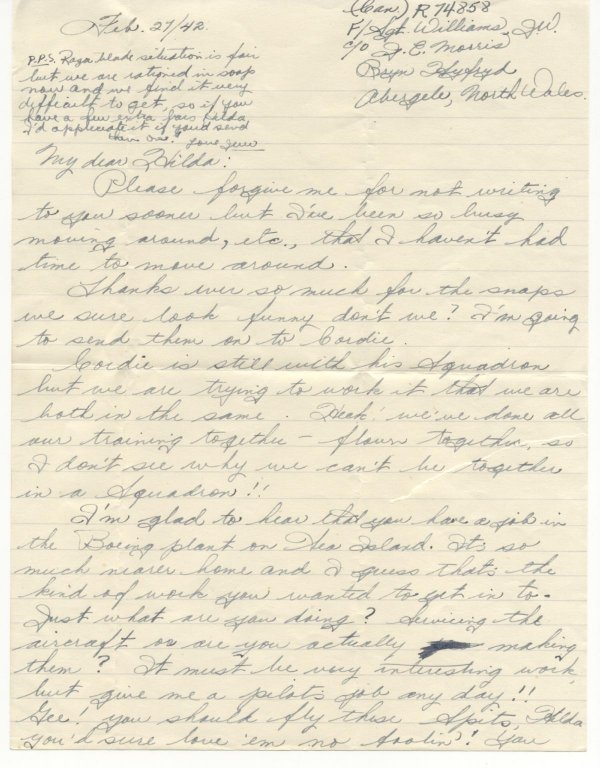 Feb. 27/42.
(Can.) R 74858
F/Sgt. Williams, J.W.
c/o J. E. Morris
Bryn Hyfryd
Abergele, North Wales.
P.P.S. Razor blade situation is fair
but we are rationed in soap
now and we find it very
difficult to get, so if you
have a few extra bars Hilda,
I'd appreciate it if you'd send
them on! Love
My dear Hilda:
Please forgive me for not writing
to you sooner but I've been so busy
moving around, etc., that I haven't had
time to move around.
Thanks ever so much for the snaps
we sure look funny don't we? I'm going
to send them on to Cordie.
Cordie is still with his Squadron
but we are trying to work it that we are
both in the same. Heck! we've done all
our training together – flown together, so
I don't see why we can't be together
in a Squadron!!
I'm glad to hear that you have a job in
the Boeing plant on Sea Island. It's so
much nearer home and I guess that's the
kind of work you wanted to get in to.
Just what are you doing? Servicing the
aircraft or are you actually making
them? It must be very interesting work
but give me a pilots job any day!!
Gee! you should fly these Spits, Hilda
you'd sure love 'em no foolin'! You